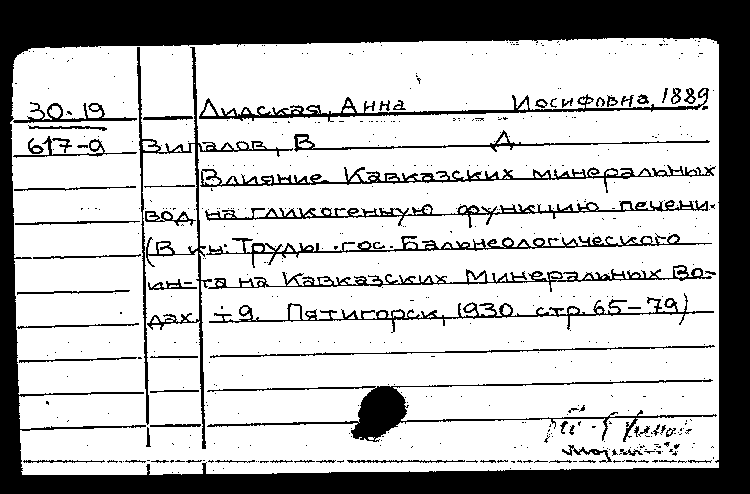 30.19 Лидская, Анна Иосифовна, 1889
617-9 Випалов, В Д.
Влияние Кавказских минеральных
вод на гликогенную функцию печени.
(В кн: Труды гос. Бальнеологического
ин-та на Кавказских Минеральных Во-
дах. т 9. Пятигорск, 1930. стр. 65-79)